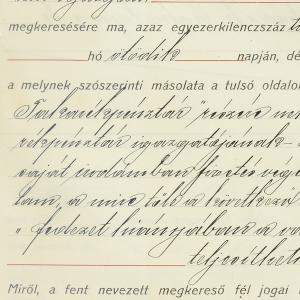 megkeresésére ma, azaz egyezerkilenczszáz
hó ötödik napján, dé
a melynek szószerinti másolata a tulsó oldalo
Takarékpénztár" részére
rékpénztár igazgatójának
saját irodámban fizetés vége
tam, a mire tőle a következő
„fedezet hiányában a
teljesíthet
Miről, a fent nevezett megkereső fél jogai